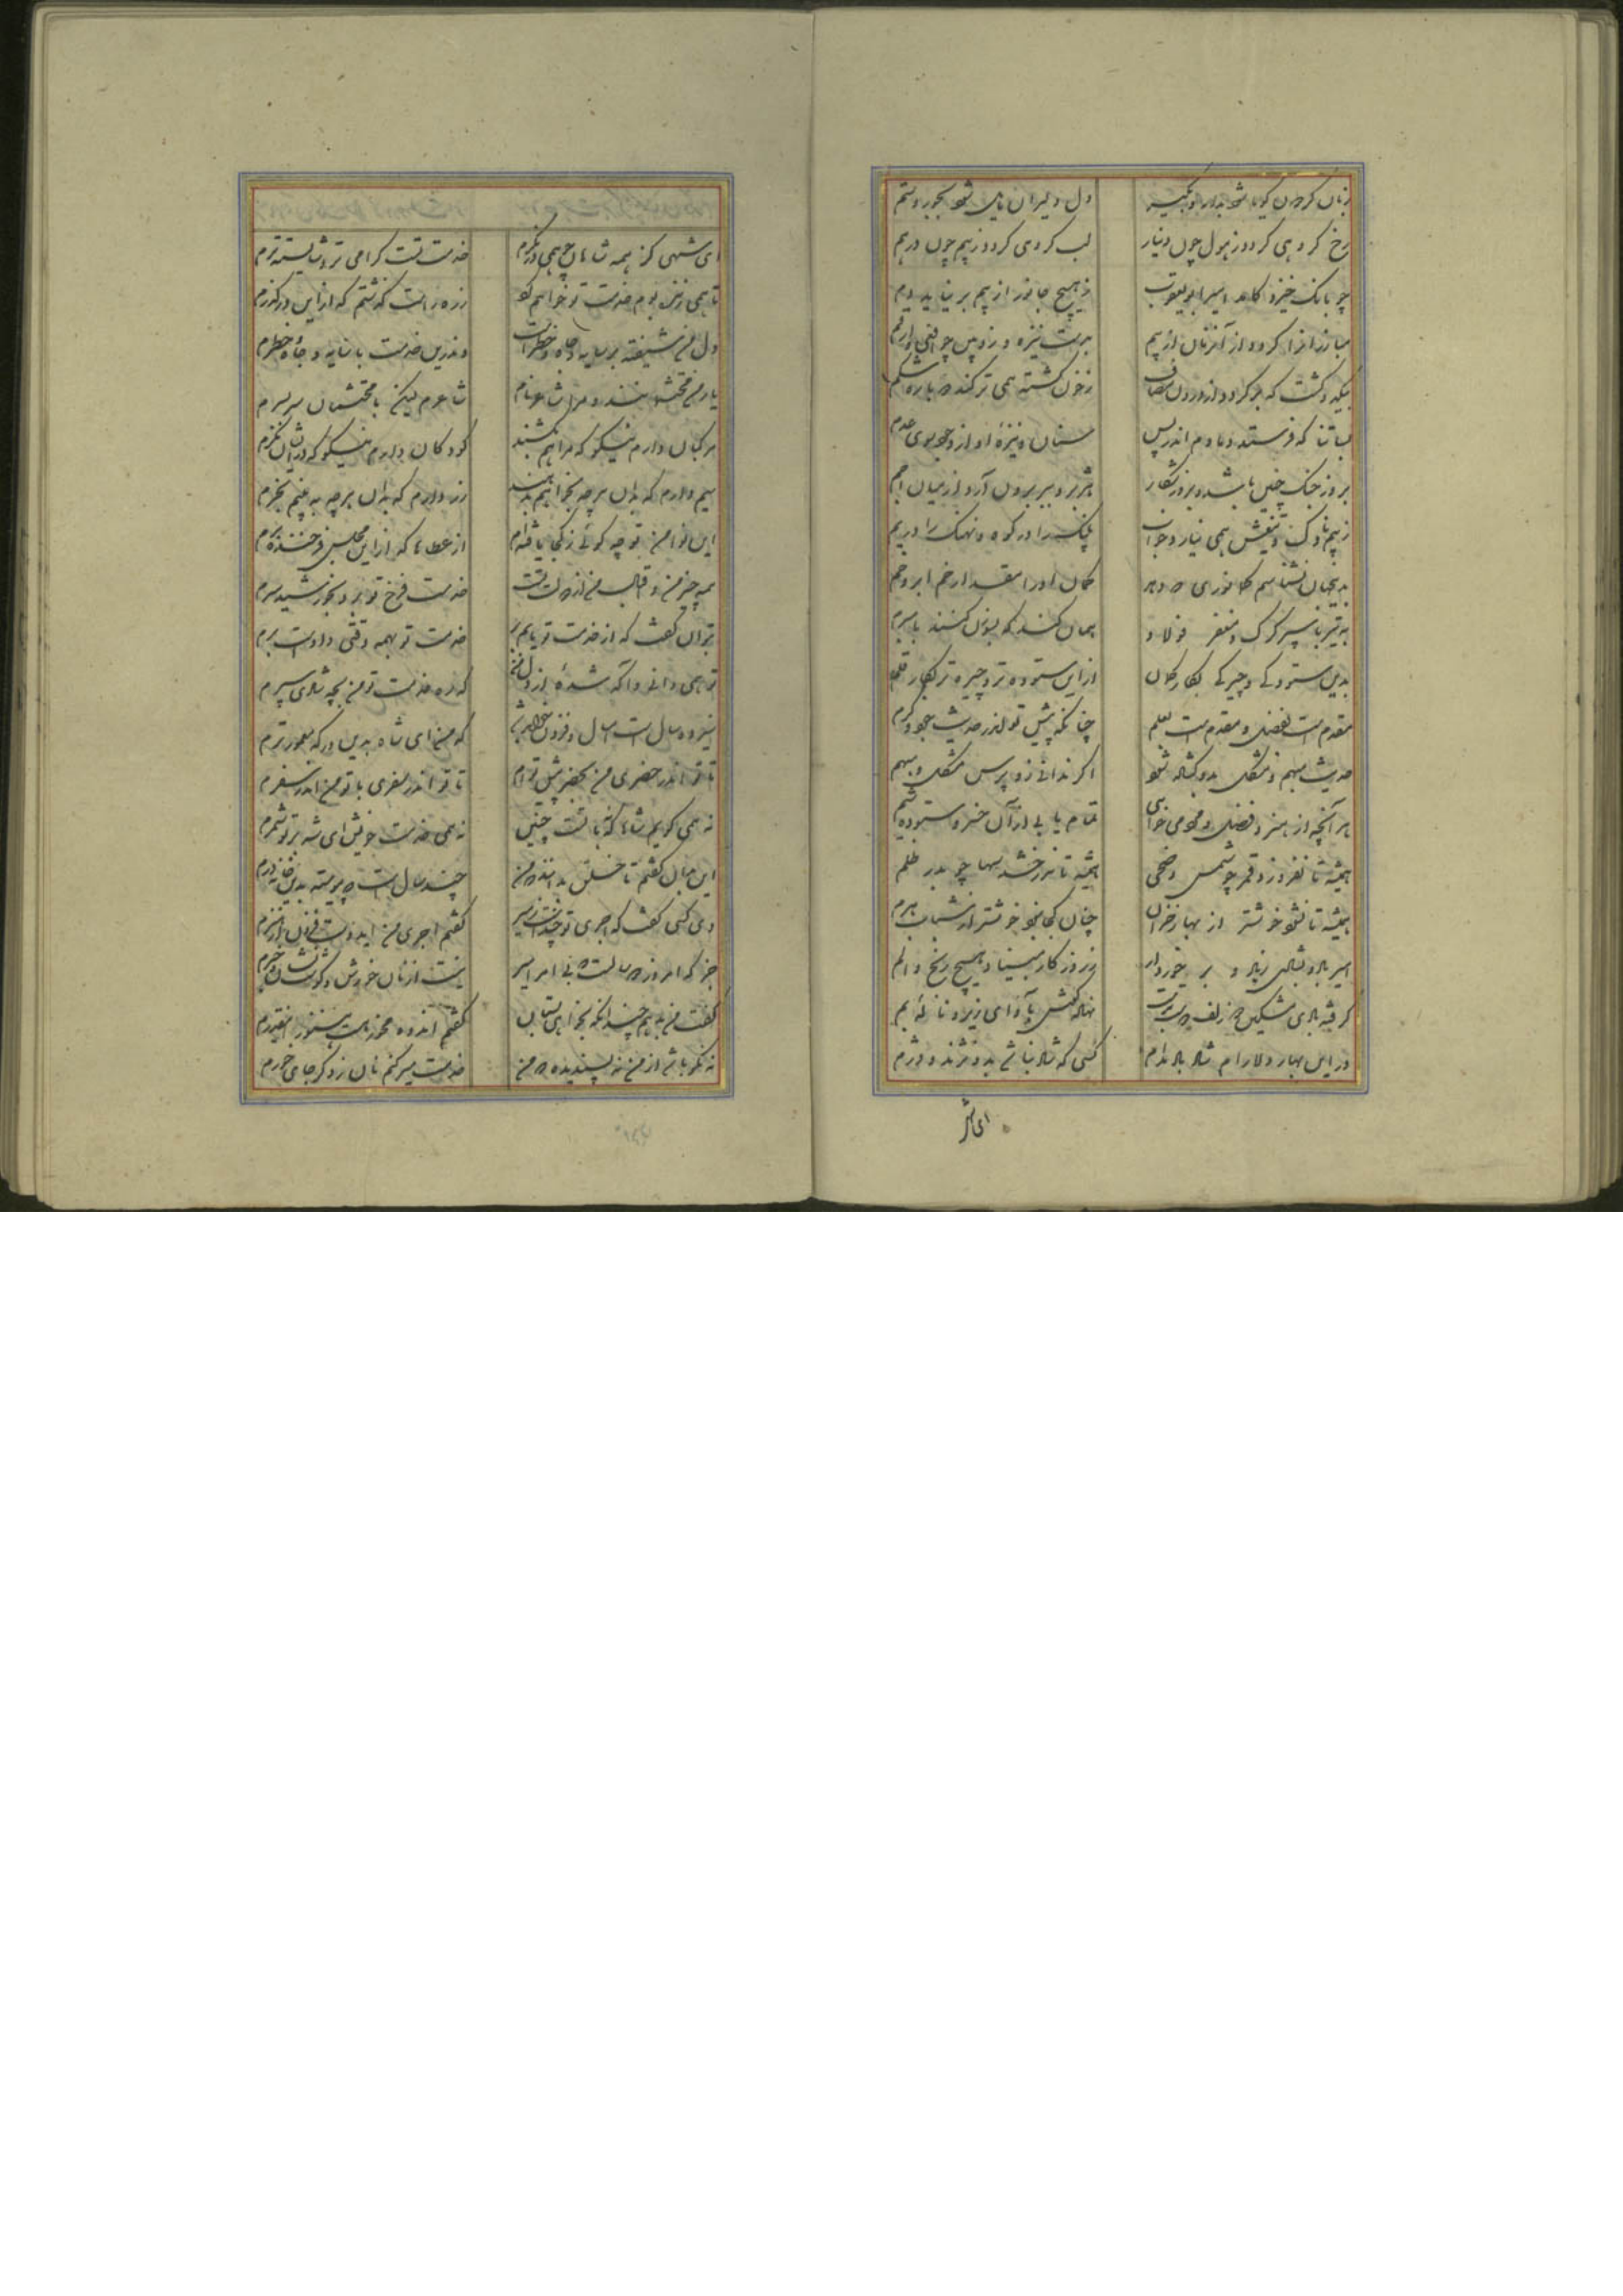 زبان کردن گویا شود بدار و بگیر	دل دلیران مایل شود بجور و ستم
رخ گروهی گردد ز هول چون دینار	لب گروهی گردد ز بیم چون درهم
چو بانگ خیزد کامد امیر ابویعقوب	ز هیچ جانور از بیم بر نیاید دم
مبارزانرا گردد از آنزمان از بیم	بدست نیزه و زوبین چو افعی و ارقم
بیکدو گشت که بر گردد اندرون مصاف	ز خون کشته همی ترکند باره شکم
بسا تنا که فرستد دمادم اندر پس	سنان و نیزه او از وجود سوی عدم
بروز جنگ چنین باشد و بروز شکار	هژبر و ببر برون آرد از میان اجم
ز بیم ناوک و تیغش همی نیارد خواب	پلنگ را در کوه و نهنگ را در یم
بدینجهان نشناسم کمانوری که دهد	کمان او را مقدار خم ابرو خم
به تیر با سپر کرگ و مغفر فولاد	همان کند که بسوزن کنند با بیرم
بدین ستودگی و چیرگی بکار کمان	ازاین ستوده تر و چیره تر بکار قلم
مقدم است بفضل و مقدم است بعلم	چنانکه پیش تو اندر حدیث جود و کرم
حدیث مبهم و مشکل بدو گشاده شود	اگر ندانی زو پرس مشکل و مبهم
هر آنچه از هنر و فضل و مردمی خواهی	تمام یابی از آن خسرو ستوده شیم
همیشه تا نفروزد قمر چو شمس ضحی	همیشه تا ندرخشد سها چو بدر ظلم
همیشه تا نشود خوشتر از بهار خزان	چنان کجا نبود خوشتر از شباب هرم
امیر باد و بشادی زیاد و برخوردار	ز روزگار مبیناد هیچ رنج و الم
گرفته بادی مشکین زلف دوست بدست	نهاده گوش بآوای زیر و ناله بم
در این بهار دلارام شاد باد مدام	کسی که شاد نباشد بدو نژند و دژم
ای شهی
ای شهی کز همه شاهان چو همی درنگرم	خدمت تست گرامی تر و شایسته ترم
تا همی زنده بوم خدمت تو خواهم کرد	از ره راست گذشتم که ازین درگذرم
دل من شیفته بر سایه و جاه و خطر است	وندرین خدمت با سایه و جاه و خطرم
یار من محتشمانند و مرا شاعر نام	شاعرم لیکن با محتشمان سر بسرم
مرکبان دارم نیکو که مرا هم بکشند	کودکان دارم نیکو که در ایشان نگرم
سیم دارم که بدان هر چه بخواهم بدهند	زر دارم که بدان هر چه به بینم بخرم
این نوا من تو چه گوئی ز کجا یافته ام	از عطاها که ازاین مجلس فرخنده برم
همه چیز من و اقبال من از دولت تست	خدمت فرخ تو برد بخورشید سرم
توان گفت که از خدمت تو یابم بر	خدمت تو بهمه وقتی داده است برم
تو همی دانی و آگه شده از دل من	که ره خدمت تو من بچه شادی سپرم
سیزده سال است امسال و فزون خواهد شد	که من ای شاه بدین درگه معمور درم
تا تو اندر حضری من بحضر پیش توام	تا تو اندر سفری با تو من اندر سفرم
نه همی گویم شاها که بایست چنین	نه همی خدمت خویش ای شه بر تو شمرم
این بدان گفتم تا خلق بدانند که من	چند سال است که پیوسته بدین خانه درم
دی کسی گفت که اجری تو چند است ز میر	گفتم اجری من ایدوست فزون از هنرم
جز که امروز دو سالست که بی امر امیر	نیست از نان خورش و کوشش
گفت من بدهم چندانکه بخواهی بستان	گفتم اندوه مخور هست هنوز اینقدرم
نه نکو باشد از من نه پسندیده که من	خدمت میر کنم نان ز دگر جای خورم